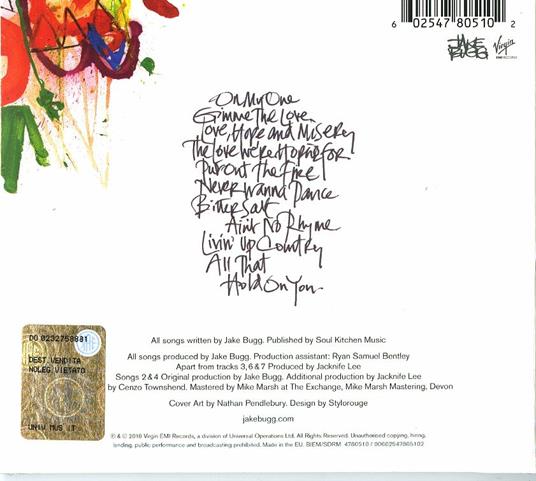 6 02547 80510 2
JAKE BUGG
Virgin
EMI RECORDS
On My One
Gimme The Love
Love, Hope and Misery
The Love We're Hoping For
Put Out The Fire
Never Wanna Dance
Bitter Salt
Ain't No Rhyme
Livin' Up Country
All That
Hold On You
DO 0232758881
DEST.VENDITA
NOLEG.VIETATO
UNIV MUS IT
All songs written by Jake Bugg. Published by Soul Kitchen Music
All songs produced by Jake Bugg. Production assistant: Ryan Samuel Bentley
Apart from tracks 3, 6 & 7 Produced by Jacknife Lee
Songs 2 & 4 Original production by Jake Bugg. Additional production by Jacknife Lee
by Cenzo Townshend. Mastered by Mike Marsh at The Exchange, Mike Marsh Mastering, Devon
Cover Art by Nathan Pendlebury. Design by Stylorouge
jakebugg.com
℗ & © 2016 Virgin EMI Records, a division of Universal Operations Ltd. All Rights Reserved. Unauthorised copying, hiring,
lending, public performance and broadcasting prohibited. Made in the EU. BIEM/SDRM 4780510 / 00602547805102